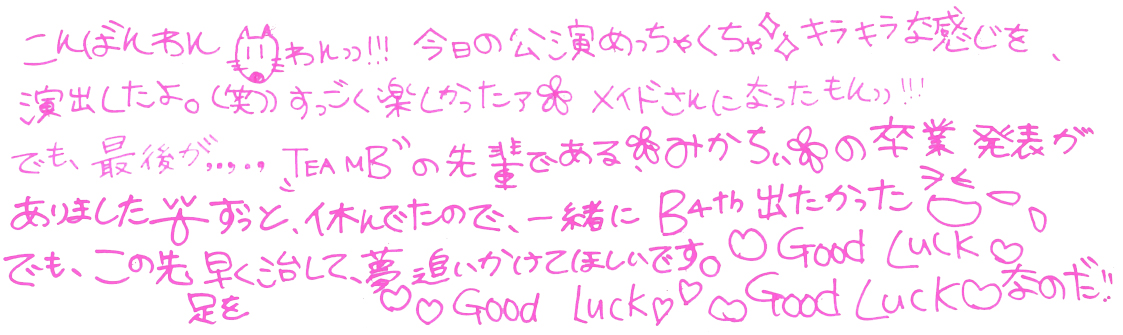 こんばんわん わんッッ!!! 今日の公演めっちゃくちゃ✧✧キラキラな感じを、
演出したよ。(笑)) すっごく楽しかったァ✿ メイドさんになったもんッッ!!!
でも、最後が,,,,,, 〝TEAMB〞の先輩である✿みかちぃ✿の卒業発表が
ありました ずっと、休んでたので、一緒に B4th 出たかった
でも、この先、早く足を治して、夢追いかけてほしいです。♡Good Luck♡
♡♡Good Luck♡♡ ♡Good Luck♡なのだ!!